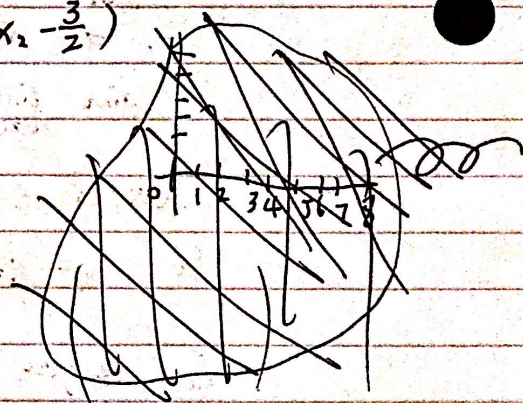 x₂ - 3/2 )
0 1 2 3 4 5 6 7 8